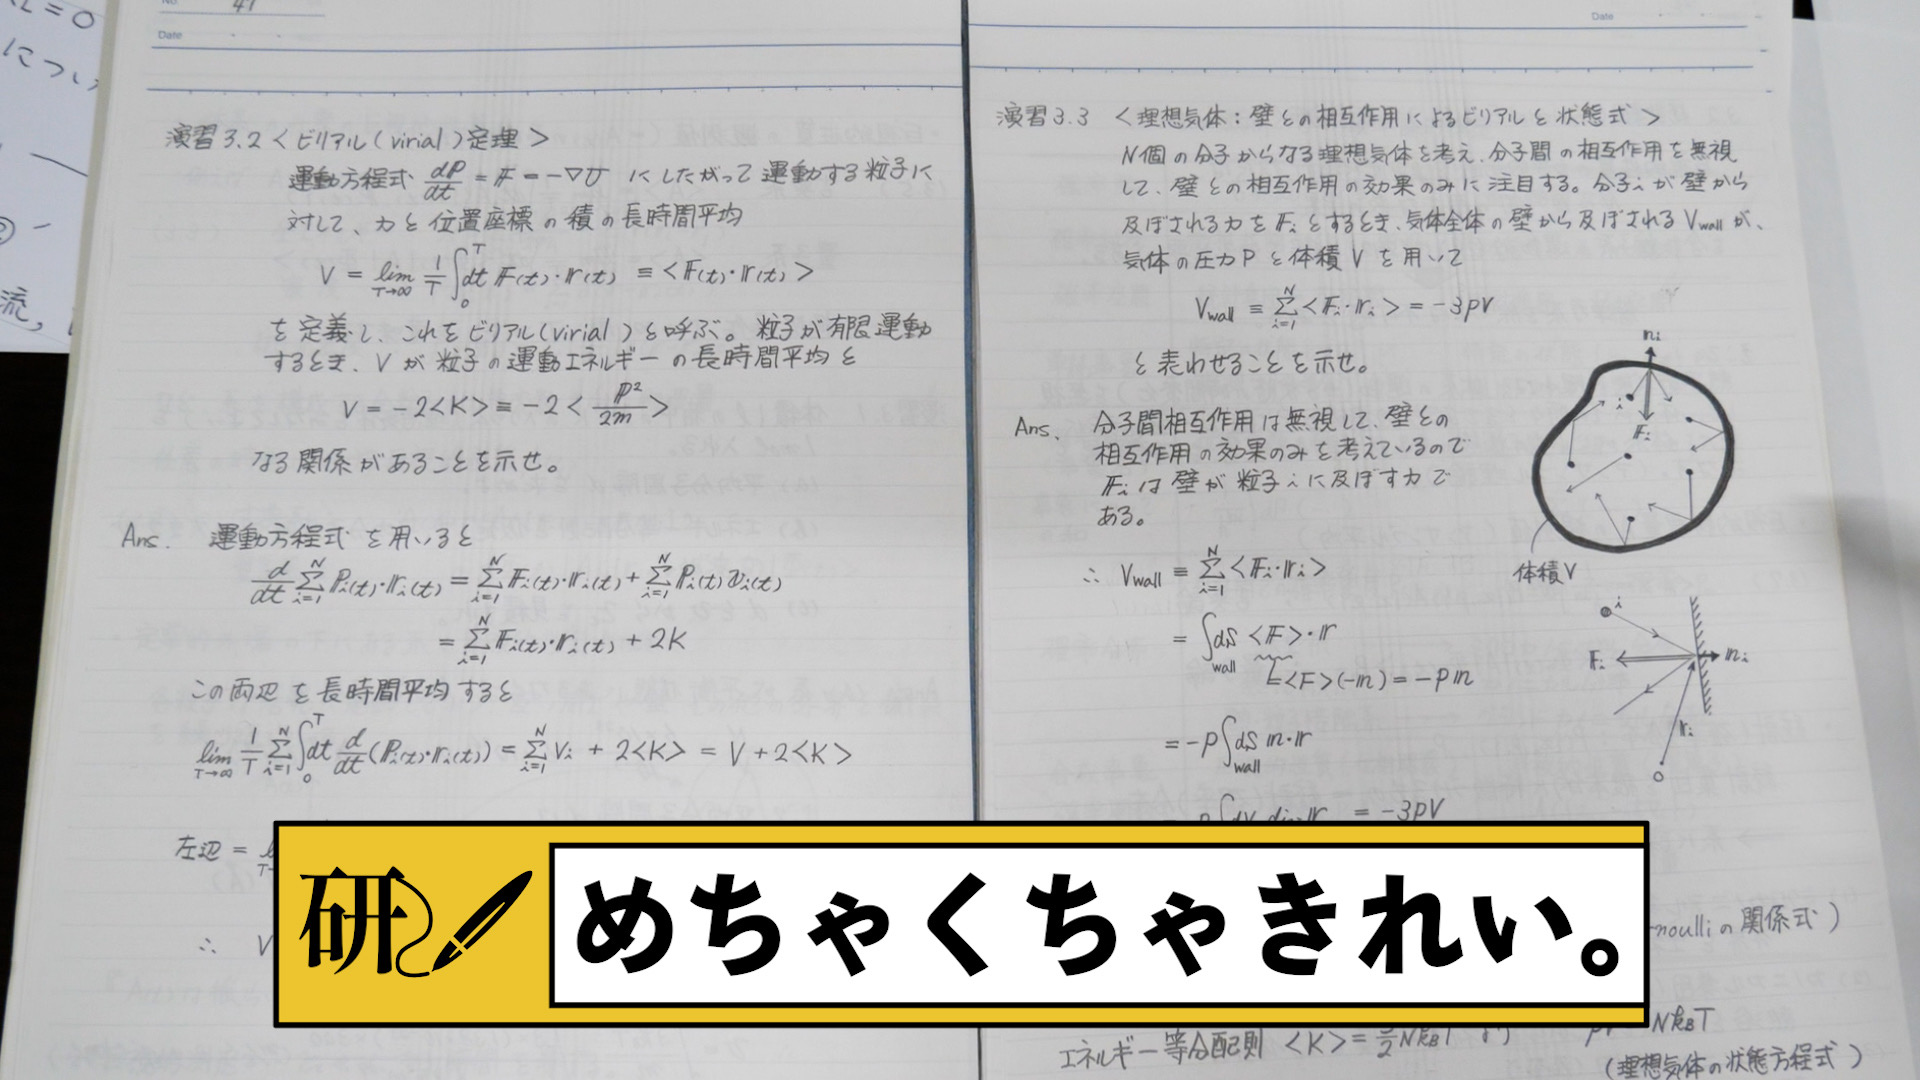 No 41
Date
演習3.2 < ビリアル(virial)定理 >
運動方程式 dP/dt = F = -∇U にしたがって運動する粒子に
対して、力と位置座標の積の長時間平均
V = lim T→∞ 1/T ∫₀ᵀ dt F(t)・r(t) ≡ <F(t)・r(t)>
を定義し、これをビリアル(virial)と呼ぶ。粒子が有限運動
するとき、Vが粒子の運動エネルギーの長時間平均と
V = -2<K> ≡ -2< P²/2m >
なる関係があることを示せ。
Ans. 運動方程式を用いると
d/dt Σᵢ₌₁ᴺ Pᵢ(t)・rᵢ(t) = Σᵢ₌₁ᴺ Fᵢ(t)・rᵢ(t) + Σᵢ₌₁ᴺ Pᵢ(t)vᵢ(t)
= Σᵢ₌₁ᴺ Fᵢ(t)・rᵢ(t) + 2K
この両辺を長時間平均すると
lim T→∞ 1/T Σᵢ₌₁ᴺ ∫₀ᵀ dt d/dt (Pᵢ(t)・rᵢ(t)) = Σᵢ₌₁ᴺ Vᵢ + 2<K> = V + 2<K>
左辺 =
∴ V
Date
演習3.3 < 理想気体:壁との相互作用によるビリアルと状態式 >
N個の分子からなる理想気体を考え、分子間の相互作用を無視
して、壁との相互作用の効果のみに注目する。分子iが壁から
及ぼされる力をFᵢとするとき、気体全体の壁から及ぼされるVwallが、
気体の圧力Pと体積Vを用いて
Vwall ≡ Σᵢ₌₁ᴺ <Fᵢ・rᵢ> = -3PV
と表わせることを示せ。
Ans. 分子間相互作用は無視して、壁との
相互作用の効果のみを考えているので
Fᵢは壁が粒子iに及ぼす力で
ある。
nᵢ
i
Fᵢ
体積V
∴ Vwall ≡ Σᵢ₌₁ᴺ <Fᵢ・rᵢ>
= ∫wall dS <F>・r
<F>(-n) = -Pn
= -P∫wall dS n・r
= -3PV
i
Fᵢ
nᵢ
rᵢ
O
noulliの関係式)
エネルギー等分配則 <K> = 3/2 NkBT より
NkBT
(理想気体の状態方程式)
研
めちゃくちゃきれい。